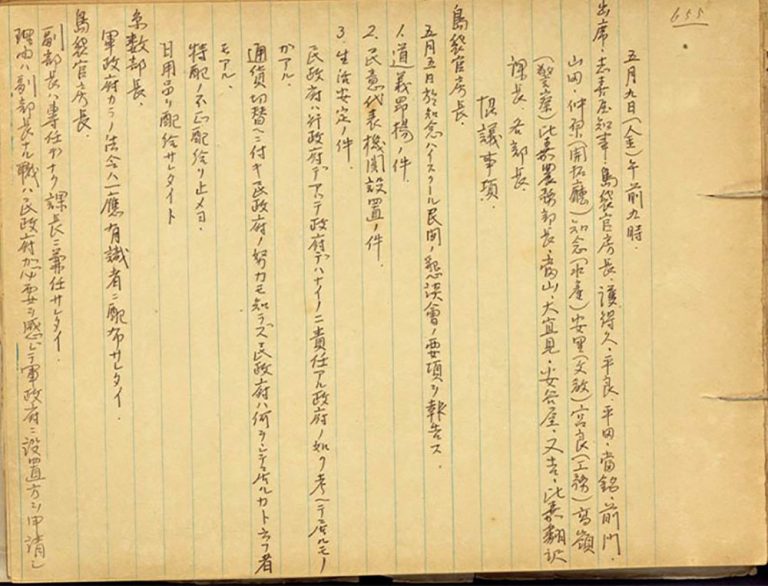 655
五月九日(金)午前九時.
出席.志喜屋知事.島袋官房長.護得久.平良.平田.當銘.前門.
山田.仲原(開拓廳)知念(水產)安里(文敎)宮良(工務)髙嶺
(警察)比嘉農務部長.當山.大宜見.安谷屋.又吉.比嘉翻訳
課長.各部長.
協議事項.
島袋官房長.
五月五日於知念ハイスクール民間ノ懇談會ノ要項ヲ報告ス.
1.道義昂揚ノ件.
2.民意代表機関設置ノ件.
3.生活安定ノ件.
民政府ハ行政府デアッテ政府デハナイノニ責任アル政府ノ如ク考ヘテ居ルモノ
ガアル.
通貨切替ヘニ付キ民政府ノ努力モ知ラズ民政府ハ何ヲシテ居ルカト云フ者
モアル.
特配ノ不正配給ヲ止メヨ.
日用品ヲ配給サレタイト
糸数部長.
軍政府カラノ法令ハ一應有識者ニ配布サレタイ.
島袋官房長.
副部長ハ專任デナク課長ニ兼任サレタイ.
理由ハ副部長ナル職ハ民政府ガ必要ヲ感ジテ軍政府ニ設置方ヲ申請シ